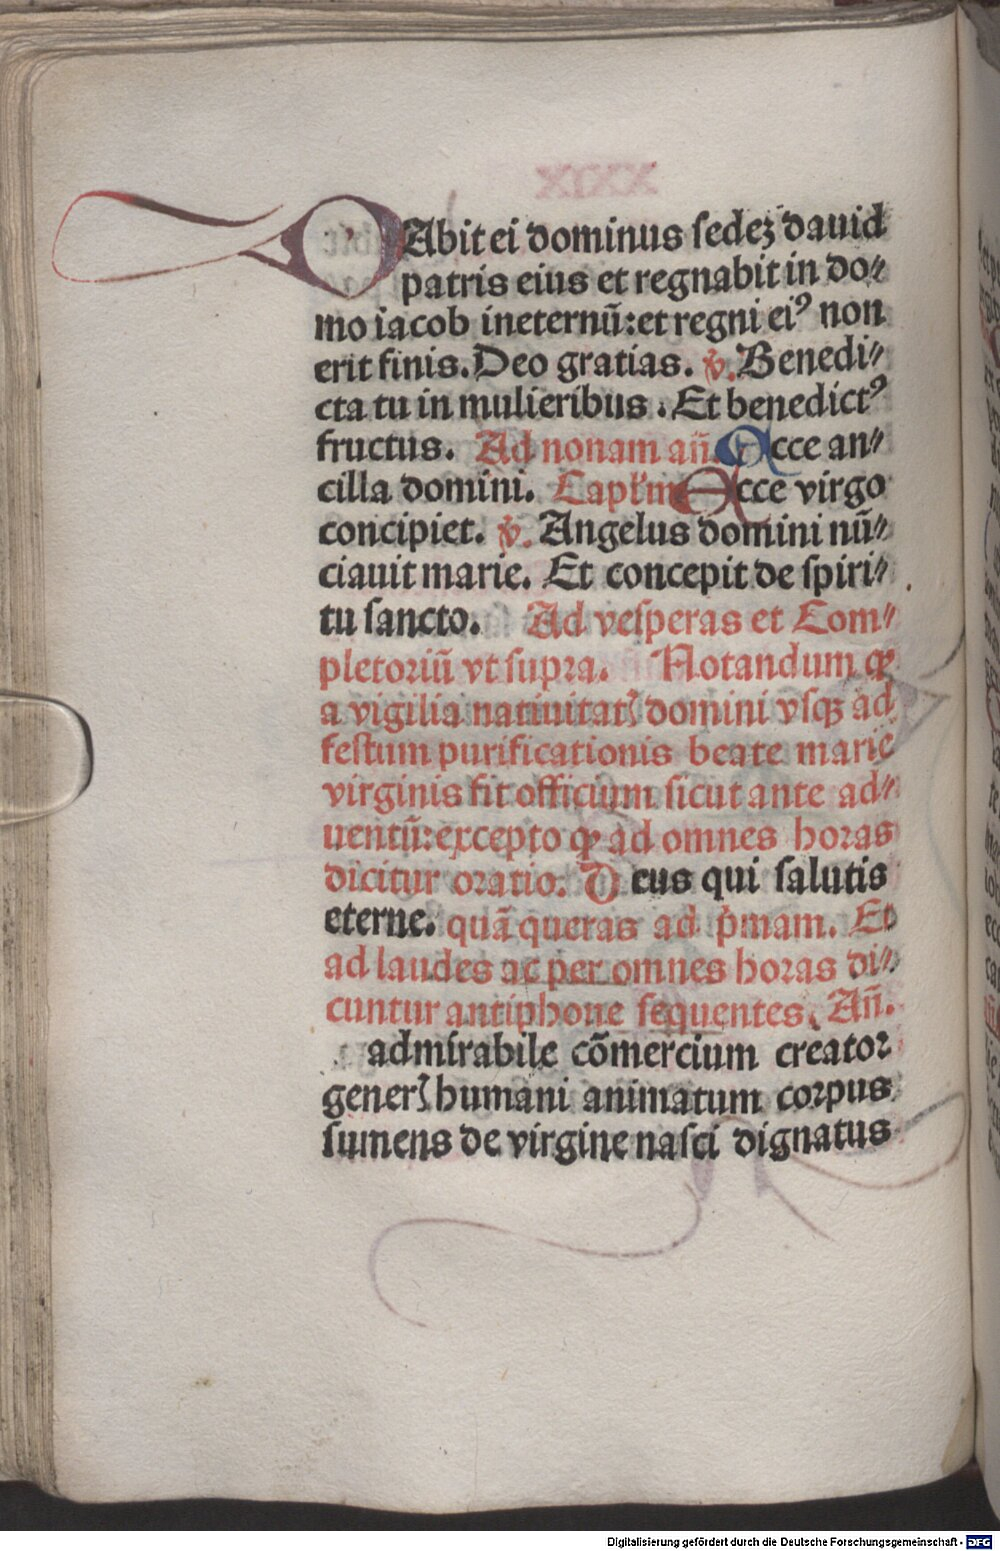 DAbit ei dominus sedeꝫ dauid
patris eius et regnabit in do⸗
mo iacob ineternū:et regni eiꝰ non
erit finis. Deo gratias. ℣. Benedi⸗
cta tu in mulieribus . Et benedictꝰ
fructus. Ad nonam añ. Ecce an⸗
cilla domini. Capłm Ecce virgo
concipiet. ℣. Angelus domini nū⸗
ciauit marie. Et concepit de spiri⸗
tu sancto. Ad vesperas et Com⸗
pletoriū vt supra. Notandum ꝙ
a vigilia natiuitatꝭ domini vsqꝫ ad
festum purificationis beate marie
virginis fit officium sicut ante ad⸗
uentū: excepto ꝙ ad omnes horas
dicitur oratio. Deus qui salutis
eterne. quā queras ad p̄mam. Et
ad laudes ac per omnes horas di⸗
cuntur antiphone sequentes. Añ.
admirabile cōmercium creator
generꝭ humani animatum corpus
sumens de virgine nasci dignatus
Digitalisierung gefördert durch die Deutsche Forschungsgemeinschaft - DFG